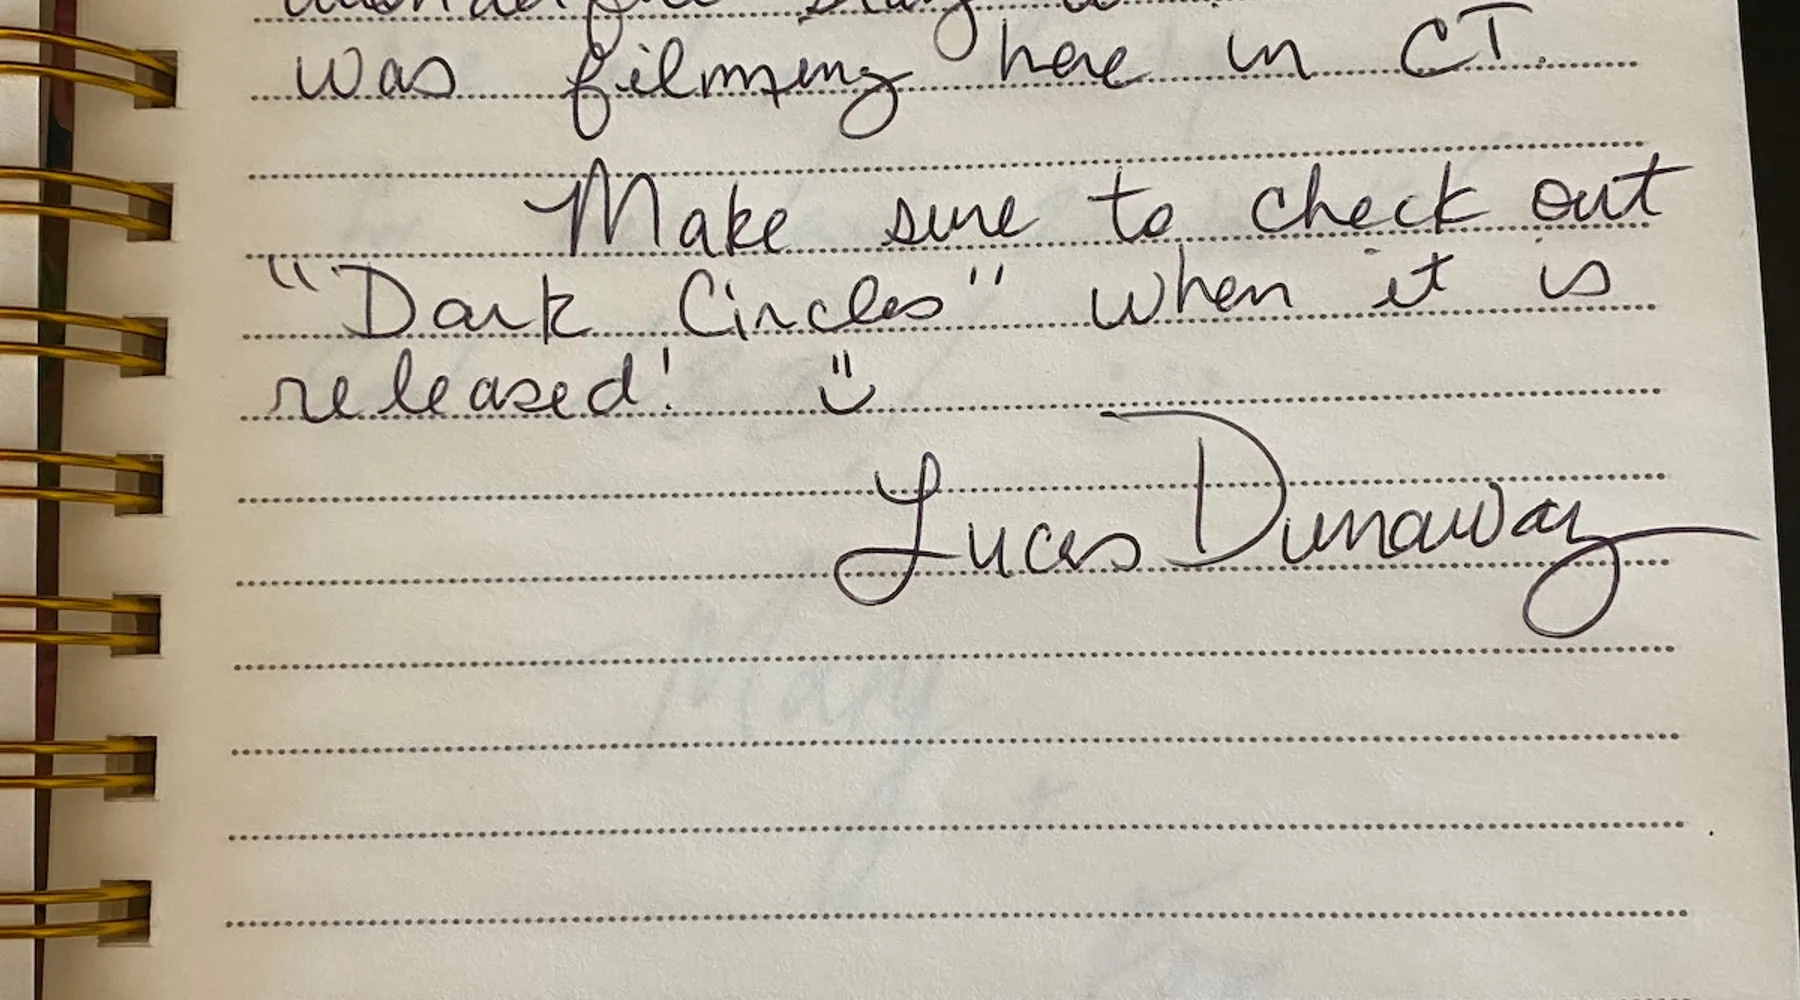 wonderful stay
was filming here in CT.
Make sure to check out
"Dark Circles" when it is
released! ü
Lucas Dunaway